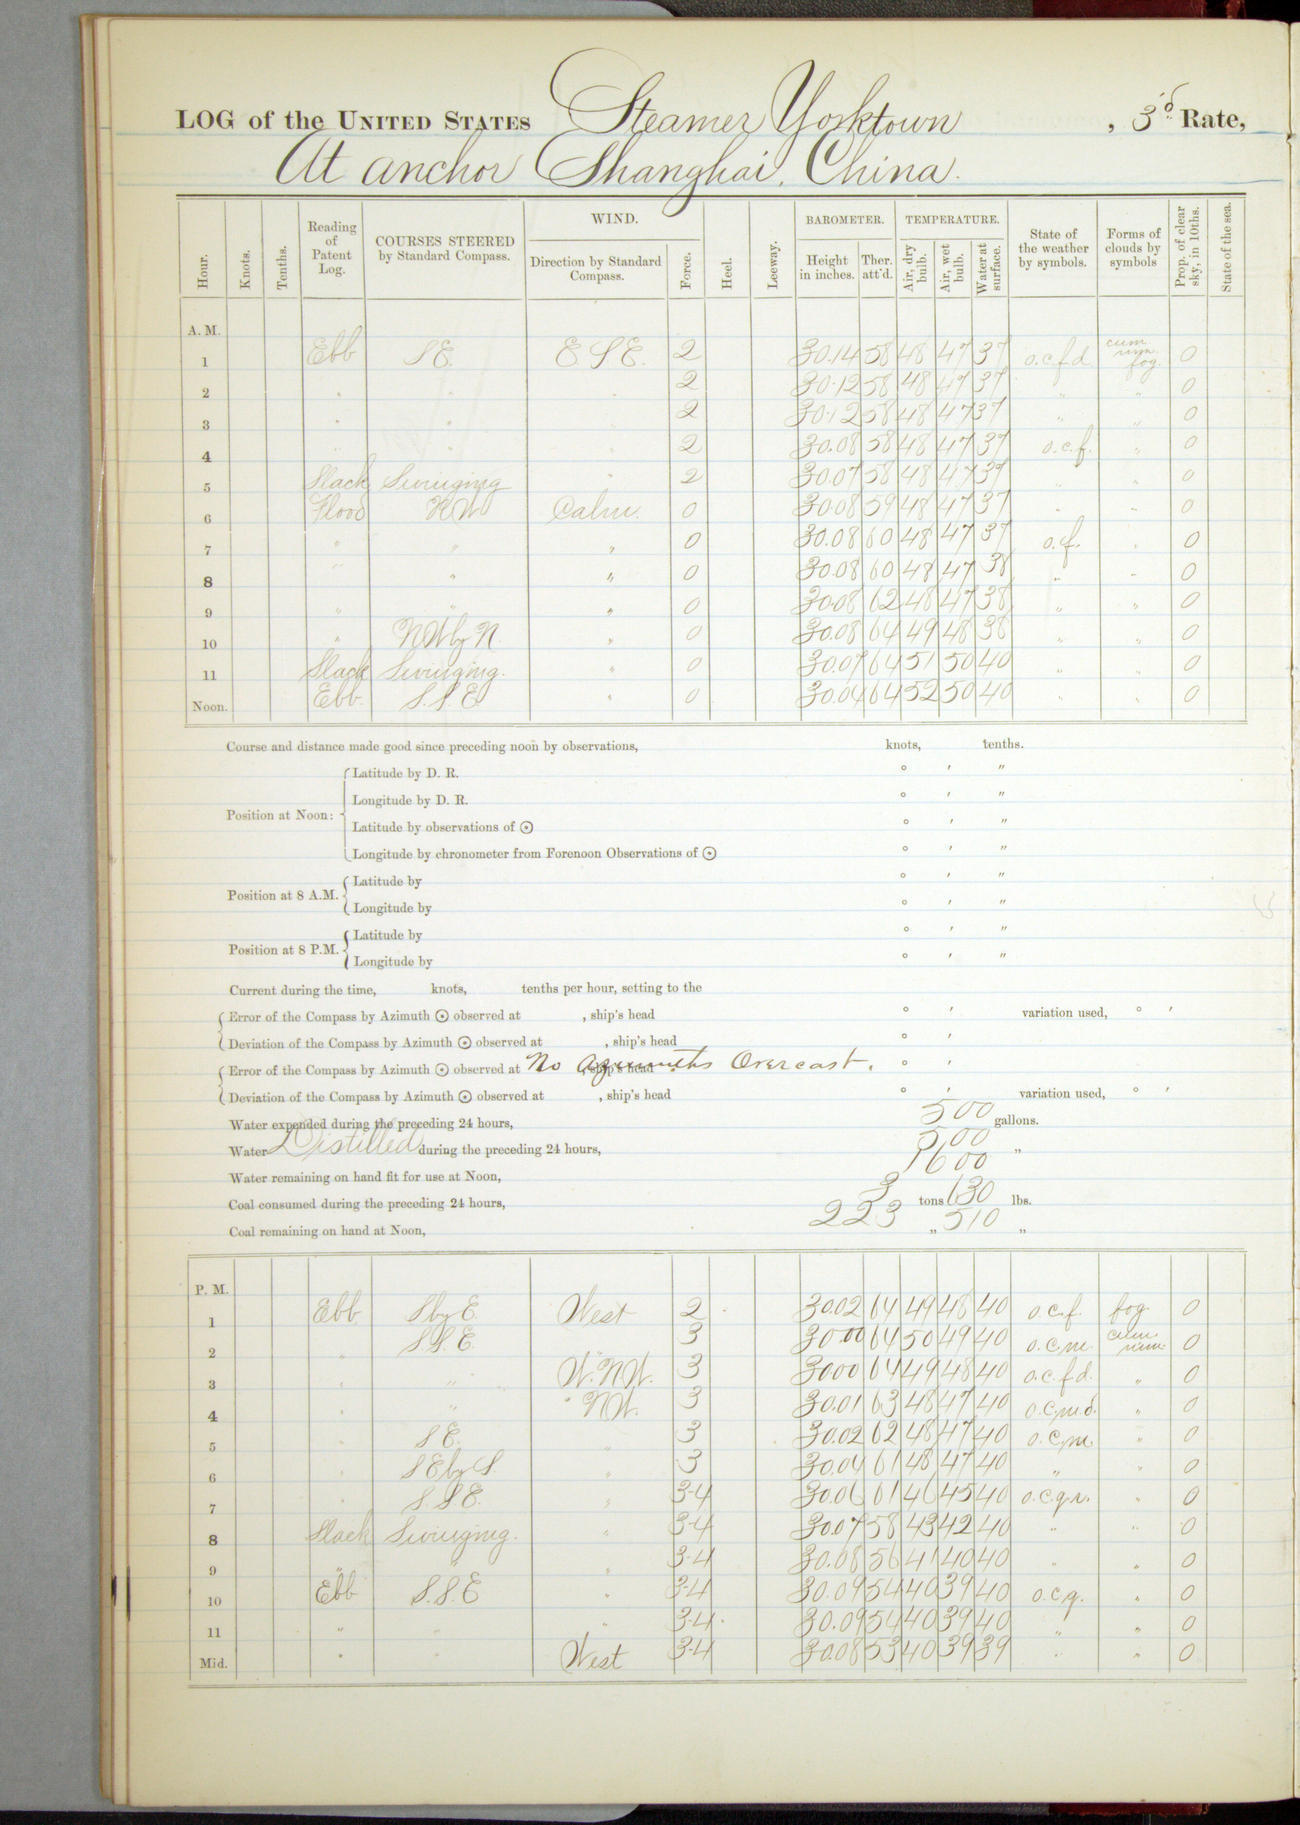 LOG of the UNITED STATES Steamer Yorktown, 3d Rate,
At anchor Shanghai, China.
Hour. Knots. Tenths. Reading of Patent Log. COURSES STEERED by Standard Compass. WIND. Direction by Standard Compass. Force. Heel. Leeway. BAROMETER. Height in inches. Ther. att'd. TEMPERATURE. Air, dry bulb. Air, wet bulb. Water at surface. State of the weather by symbols. Forms of clouds by symbols Prop. of clear sky, in 10ths. State of the sea.
A. M.
1 Ebb S E. E S E. 2 30.14 58 48 47 37 o.c.f.d. cum. nim. fog. 0
2 " " " 2 30.12 58 48 47 37 " " 0
3 " " " 2 30.12 58 48 47 37 " " 0
4 " " " 2 30.08 58 48 47 37 o.c.f. " 0
5 Slack Swinging " 2 30.07 58 48 47 37 " " 0
6 Flood N W Calm. 0 30.08 59 48 47 37 " " 0
7 " " " 0 30.08 60 48 47 37 o.f. " 0
8 " " " 0 30.08 60 48 47 38 " " 0
9 " " " 0 30.08 62 48 47 38 " " 0
10 " N W by N. " 0 30.08 64 49 48 38 " " 0
11 Slack Swinging. " 0 30.07 64 51 50 40 " " 0
Noon. Ebb. S. S. E " 0 30.04 64 52 50 40 " " 0
Course and distance made good since preceding noon by observations, knots, tenths.
Position at Noon: Latitude by D. R. ° ′ ″
Longitude by D. R. ° ′ ″
Latitude by observations of ☉ ° ′ ″
Longitude by chronometer from Forenoon Observations of ☉ ° ′ ″
Position at 8 A.M. Latitude by ° ′ ″
Longitude by ° ′ ″
Position at 8 P.M. Latitude by ° ′ ″
Longitude by ° ′ ″
Current during the time, knots, tenths per hour, setting to the
Error of the Compass by Azimuth ☉ observed at , ship's head ° ′ variation used, ° ′
Deviation of the Compass by Azimuth ☉ observed at , ship's head ° ′
Error of the Compass by Azimuth ☉ observed at , ship's head No azimuths Overcast. ° ′
Deviation of the Compass by Azimuth ☉ observed at , ship's head ° ′ variation used, ° ′
Water expended during the preceding 24 hours, 500 gallons.
Water Distilled during the preceding 24 hours, 500 "
Water remaining on hand fit for use at Noon, 1600
Coal consumed during the preceding 24 hours, 3 tons 630 lbs.
Coal remaining on hand at Noon, 223 " 510 "
P. M.
1 Ebb S by E. West 2 30.02 64 49 48 40 o.c.f. fog 0
2 " S. S. E. " 3 30.00 64 50 49 40 o.c.m. cum. nim. 0
3 " " W. N W. 3 30.00 64 49 48 40 o.c.f.d. " 0
4 " " N W. 3 30.01 63 48 47 40 o.c.m.d. " 0
5 " S E. " 3 30.02 62 48 47 40 o.c.m. " 0
6 " S E by S. " 3 30.04 61 48 47 40 " " 0
7 " S. S E. " 3-4 30.06 61 46 45 40 o.c.q.r. " 0
8 Slack Swinging. " 3-4 30.07 58 43 42 40 " " 0
9 " " " 3-4 30.08 56 41 40 40 " " 0
10 Ebb S. S. E " 3-4 30.09 54 40 39 40 o.c.q. " 0
11 " " " 3-4 30.09 54 40 39 40 " " 0
Mid. " " West 3-4 30.08 53 40 39 39 " " 0